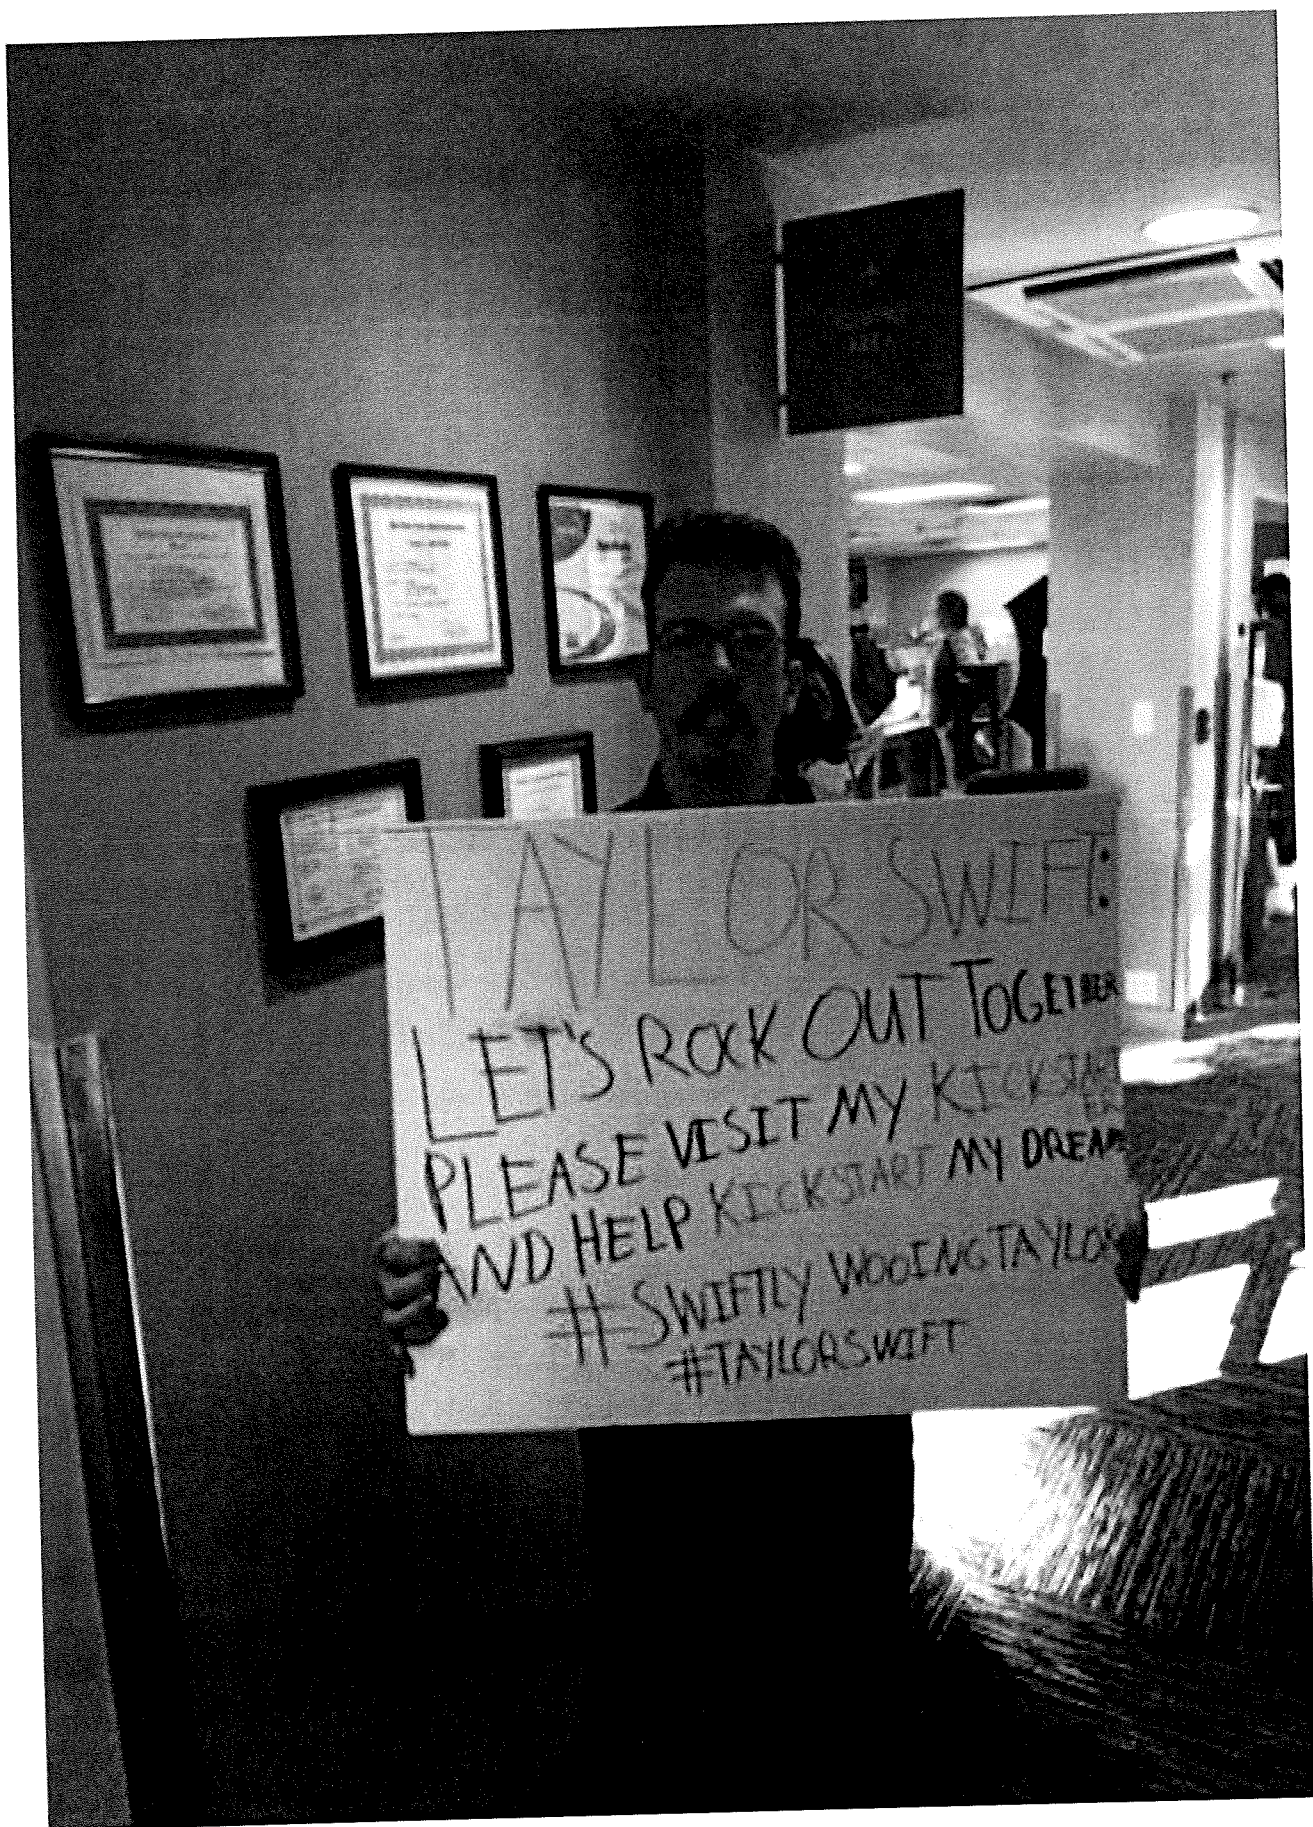 TAYLOR SWIFT:
LET'S ROCK OUT TOGETHER
PLEASE VISIT MY KICKSTART
ER
AND HELP KICKSTART MY DREAMS
#SWIFTLY WOOING TAYLOR
#TAYLORSWIFT